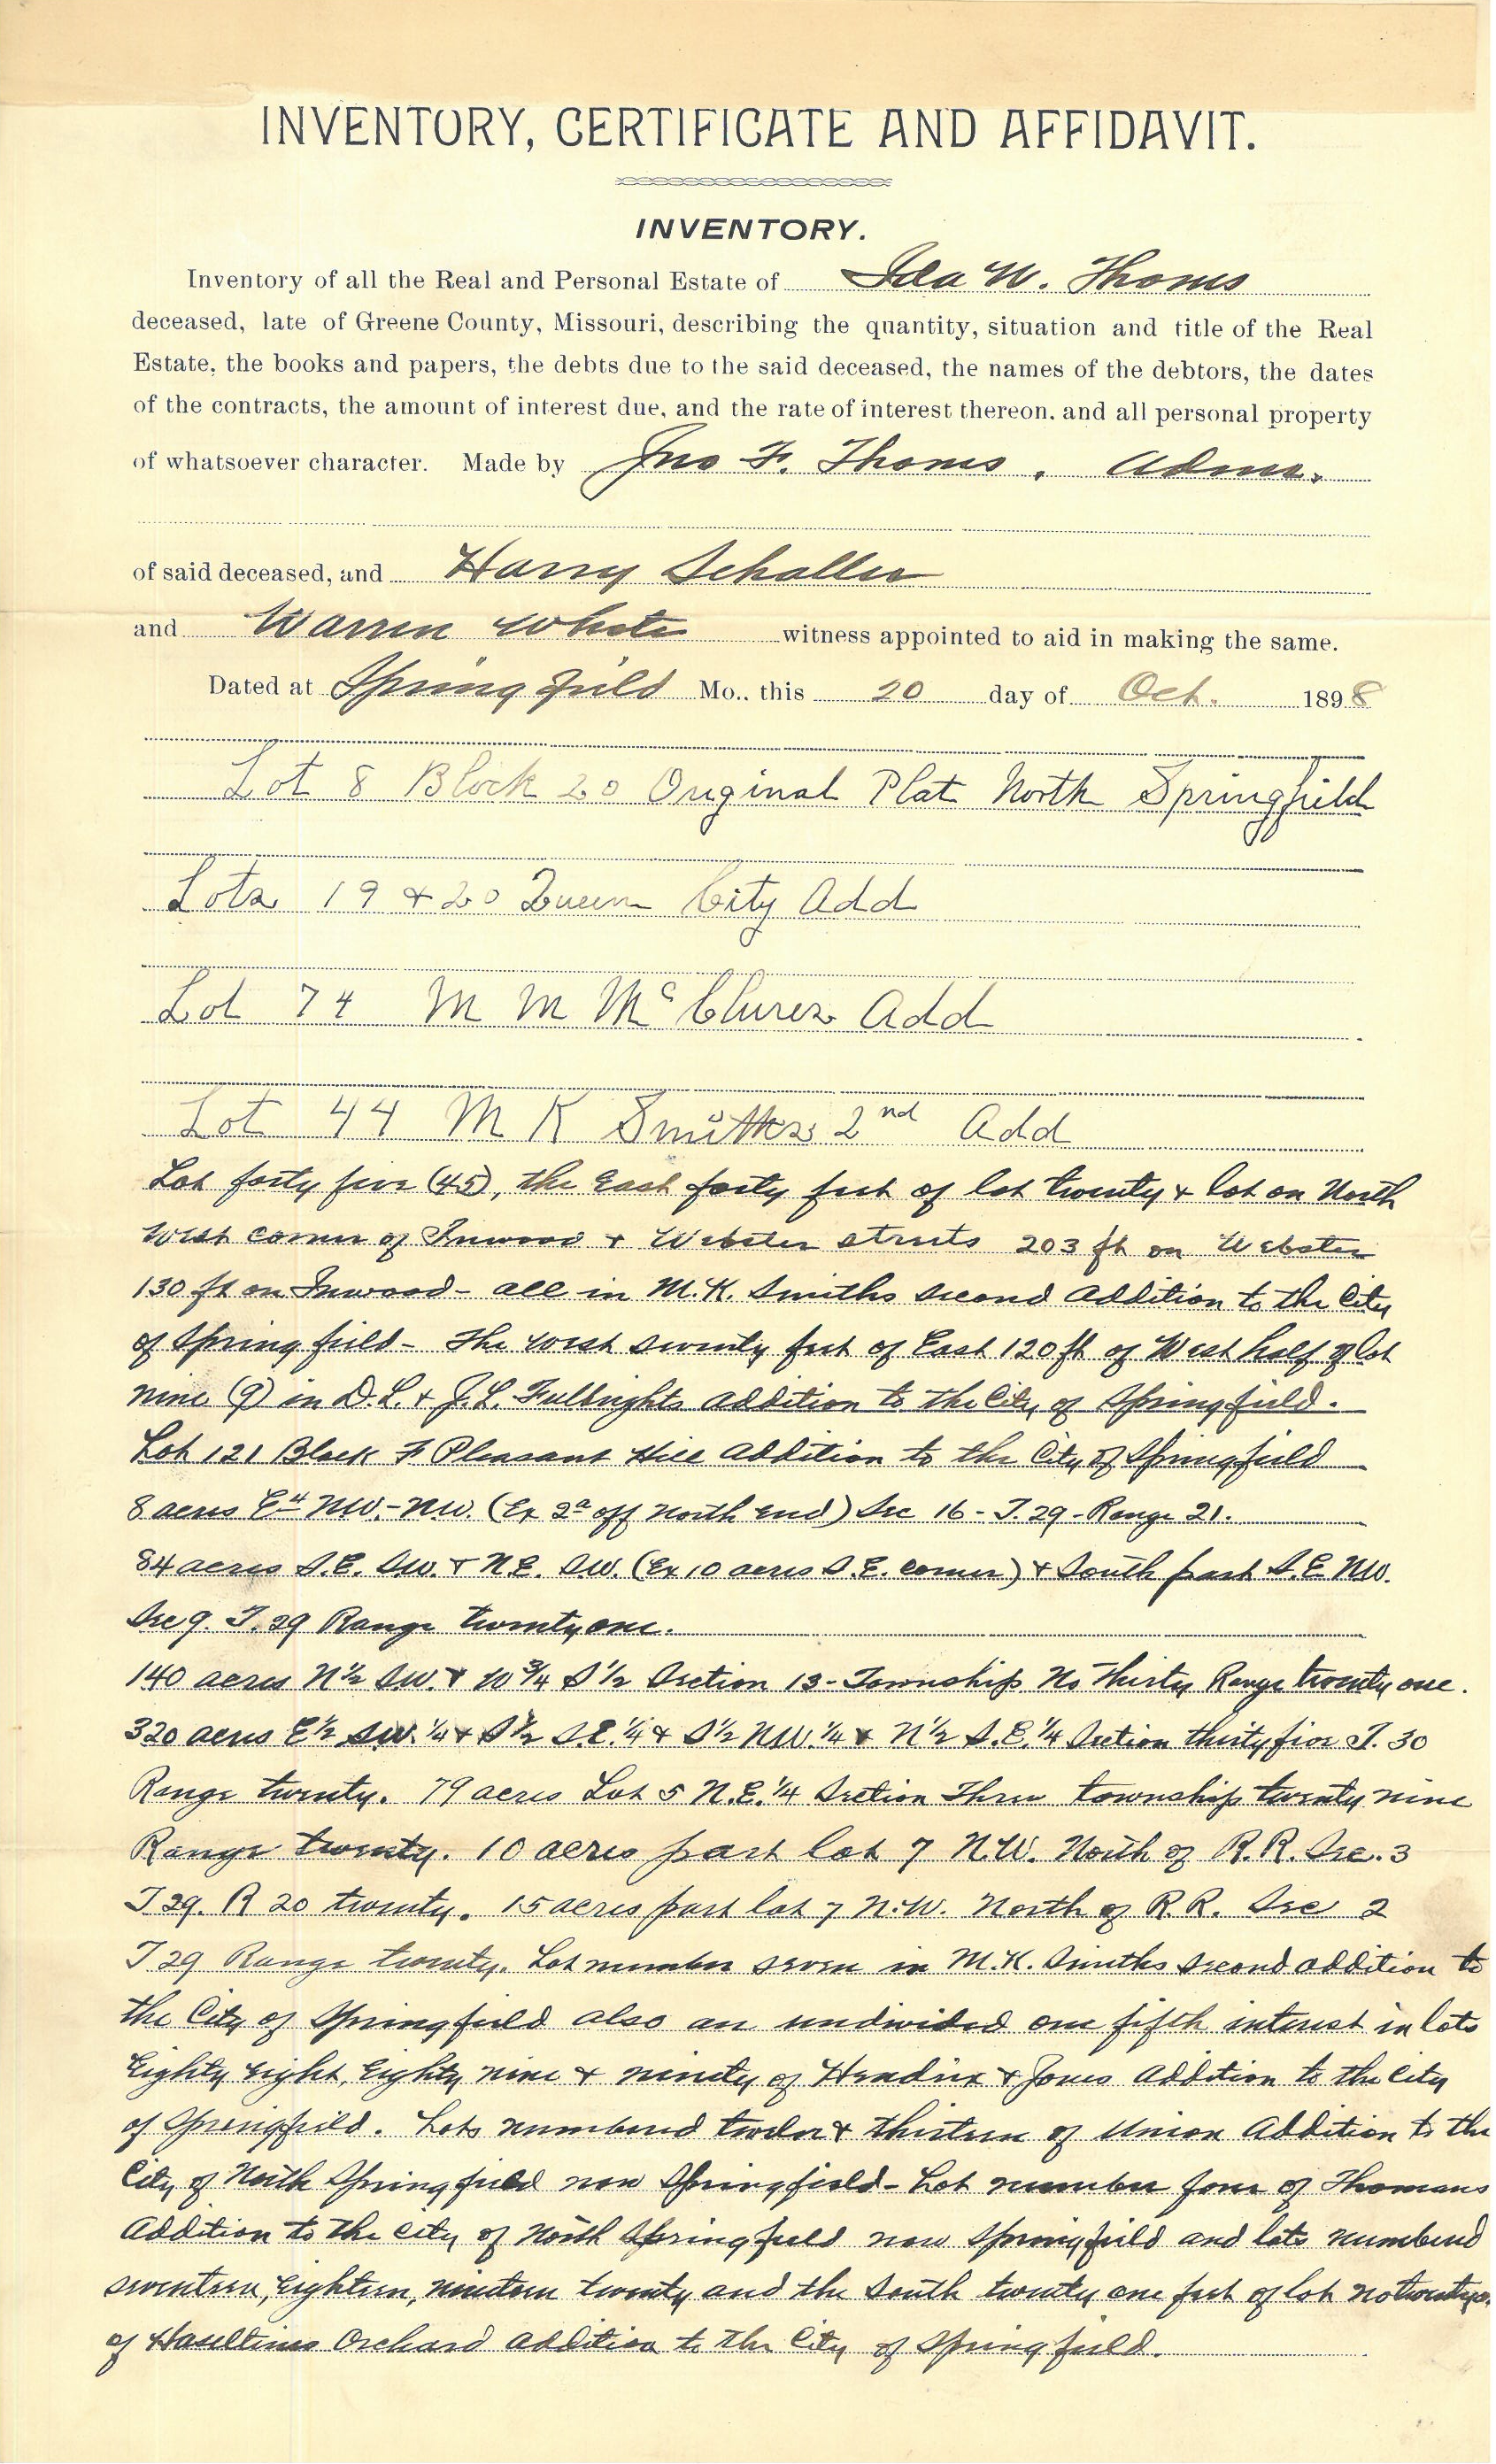 INVENTORY, CERTIFICATE AND AFFIDAVIT.
INVENTORY.
Inventory of all the Real and Personal Estate of Ida W. Thoms
deceased, late of Greene County, Missouri, describing the quantity, situation and title of the Real
Estate, the books and papers, the debts due to the said deceased, the names of the debtors, the dates
of the contracts, the amount of interest due, and the rate of interest thereon, and all personal property
of whatsoever character. Made by Jno F. Thoms, Admr.
of said deceased, and Harry Schaller
and Warren White witness appointed to aid in making the same.
Dated at Springfield Mo., this 20 day of Oct. 1898
Lot 8 Block 20 Original Plat North Springfield
Lots 19 & 20 Queen City Add
Lot 74 M M McClures Add
Lot 44 M K Smiths 2nd Add
Lot forty five (45), the East forty feet of lot twenty & lot on North
West corner of Inwood & Webster streets 203 ft on Webster
130 ft on Inwood - all in M.K. Smiths second addition to the City
of Springfield - The west seventy feet of East 120 ft of West half of lot
nine (9) in D.L. & J.L. Fulbrights addition to the City of Springfield.
Lot 121 Block F Pleasant Hill addition to the City of Springfield
8 acres E 4 NW.-NW. (Ex 2a off North end) Sec 16 - T. 29 - Range 21.
84 acres S.E. SW. & N.E. SW. (Ex 10 acres S.E. corner) & South part S.E NW.
Sec 9. T. 29 Range twenty one.
140 acres N 1/2 SW. & W 3/4 S 1/2 Section 13 - Township No Thirty Range twenty one.
320 acres E 1/2 SW. 1/4 & S 1/2 S.E. 1/4 & S 1/2 NW. 1/4 & N 1/2 S.E. 1/4 Section thirty five T. 30
Range twenty. 79 acres Lot 5 N.E. 1/4 Section Three township twenty nine
Range twenty. 10 acres part lot 7 N.W. North of R.R. Sec. 3
T 29. R 20 twenty. 15 acres part lot 7 N.W. North of R.R. Sec 2
T 29 Range twenty. Lot number seven in M.K. Smiths second addition to
the City of Springfield also an undivided one fifth interest in lots
Eighty eight, Eighty nine & ninety of Hendrix & Jones Addition to the City
of Springfield. Lots numbered twelve & thirteen of Union Addition to the
City of North Springfield now Springfield - Lot number four of Thomans
Addition to the City of North Springfield now Springfield and lots numbered
seventeen, Eighteen, nineteen twenty and the South twenty one feet of lot no
of Haseltines Orchard addition to the City of Springfield.